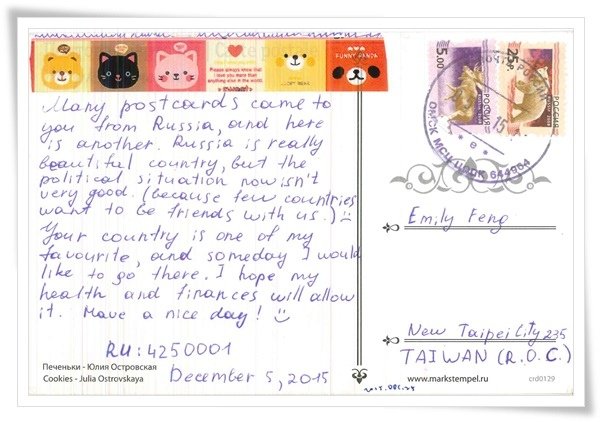 Many postcards came to
you from Russia, and here
is another. Russia is really
beautiful country, but the
political situation now isn't
very good. (because few countries
want to be friends with us.)
Your country is one of my
favourite, and someday I would
like to go there. I hope my
health and finances will allow
it. Have a nice day!
RU: 4250001
December 5, 2015
Печеньки - Юлия Островская
Cookies - Julia Ostrovskaya
FUNNY PANDA
Please always know that
I love you more than
anything else in the world.
5,00
РОССИЯ
25
РОССИЯ
ОМСК МСЦ ЦРПК 644964
Emily Feng
New Taipei City 235
TAIWAN (R.O.C.)
2015.DEC.25
www.markstempel.ru
crd0129